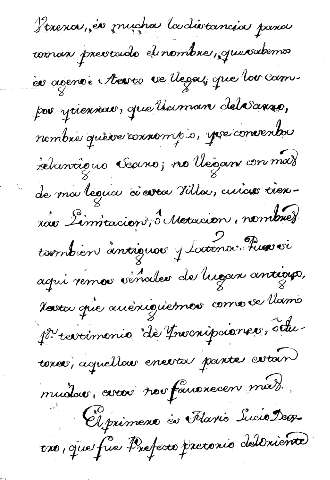 Utrera, és mucha la distancia para
tomar prestado el nombre, que sabemos
és ageno: A esto se llega, que los cam-
pos y tierras, que llaman del
nombre que se corrompió, y se conserba
el antiguo no llegan con más
de una legua á esta Villa, cuias tier-
rás Limitacion, ô Metacion, nombres
tambien ántiguos y Latinos. Pues si
aqui vemos señales de lugar antiguo,
resta que averiguemos como se llamó
pr. testimonio de Ynscripciones, ô Au-
tores, aquellas enesta parte estan
mudas, estos nos favorecen más.
El primero és Flavio Lucio Dex-
tro, que fue Prefecto pretorio del Oriente